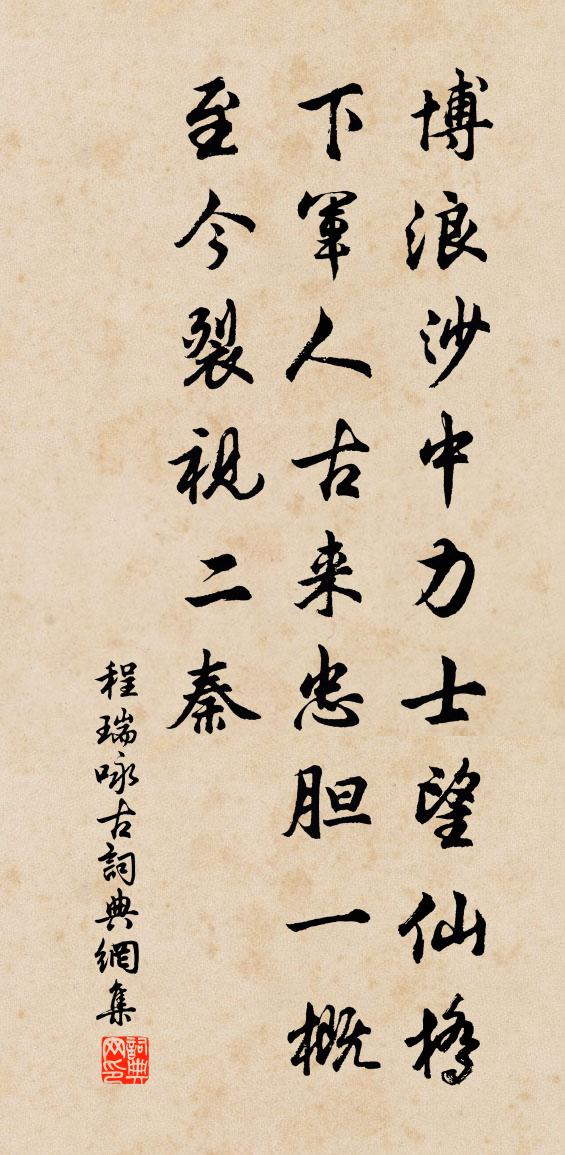 博浪沙中力士望仙桥
下军人古来忠胆一概
至今裂视二秦
程瑞咏古詞典網集
詞典网印